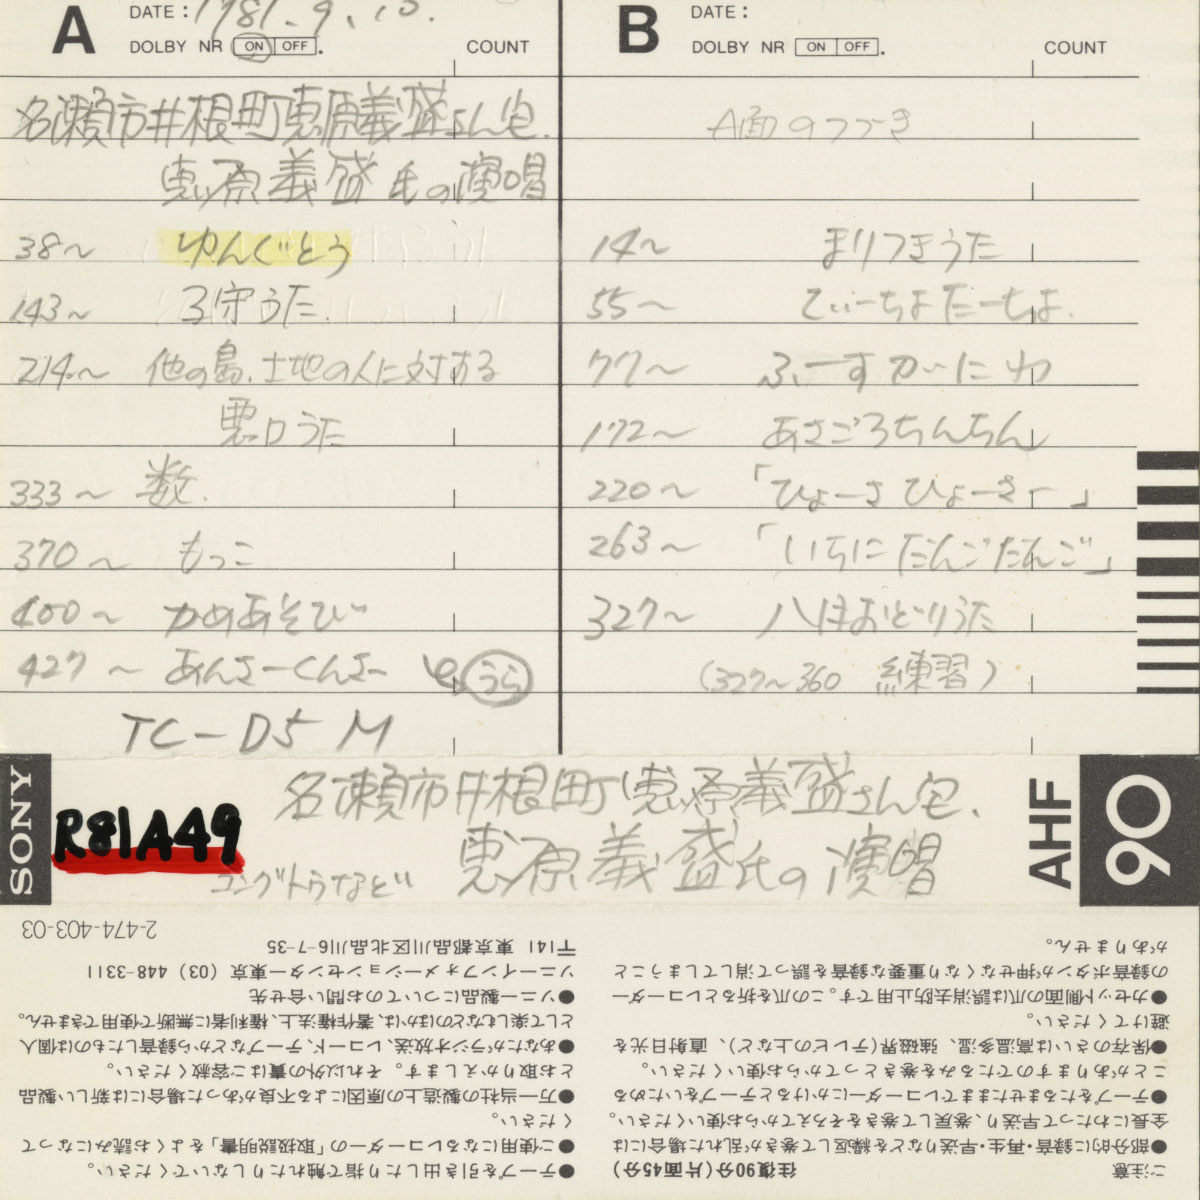 A
DATE : 1981. 9. 10.
DOLBY NR ON OFF . COUNT
名瀬市井根町恵原義盛さん宅.
恵原義盛氏の演唱
38〜 ゆんぐとう
143〜 子守うた.
214〜 他の島、土地の人に対する
悪口うた
333〜 数.
370〜 もっこ
400〜 かめあそび
427〜 あんさーくんさー うら
TC-D5 M
B
DATE :
DOLBY NR ON OFF . COUNT
A面のつづき
14〜 まりつきうた
55〜 てぃーちよたーちよ.
77〜 ふーすがいにわ
172〜 あさごろちんちん
220〜 「ひょーさひょーさー」
263〜 「いちにだんごだんご」
327〜 八月おどりうた
(327〜360 練習)
SONY
R81A49
名瀬市井根町恵原義盛さん宅.
恵原義盛氏の演唱
ユングトゥなど
AHF
90
ご注意 往復90分(片面45分)
●部分的に録音・再生・早送りなどを繰返して巻きが乱れた場合には
全長にわたって早送り、巻戻して巻きをそろえてからお使いください。
●テープをたるませたままでレコーダーにかけるとテープをいためる
ことがありますのでたるみを巻きとってからお使いください。
●保存のさいは高温多湿、強磁界(テレビの上など)、直射日光を
避けてください。
●カセット側面の爪は誤消去防止用です。この爪を折るとレコーダー
の録音ボタンが押せなくなり重要な録音を誤って消してしまうこと
がありません。
●テープを引き出したり指で触れたりしないでください。
●ご使用になるレコーダーの「取扱説明書」をよくお読みになって
ください。
●万一当社の製造上の原因による不良があった場合には新しい製品
とお取りかえします。それ以外の責はご容赦ください。
●あなたがラジオ放送、レコード、テープなどから録音したものは個人
として楽しむなどのほかは、著作権法上、権利者に無断で使用できません。
●ソニー製品についてのお問い合せ先
ソニーインフォメーションセンター東京 (03) 448-3311
〒141 東京都品川区北品川6-7-35
2-474-403-03